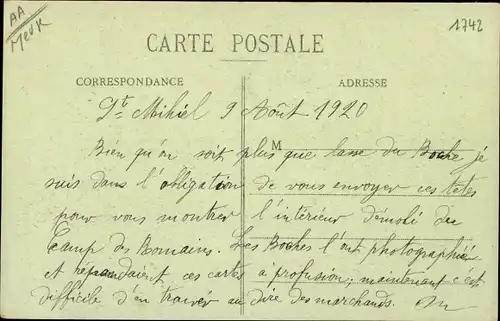 AA
Meuse
1742
CARTE POSTALE
CORRESPONDANCE
ADRESSE
M
St Mihiel 9 Août 1920
Bien qu'on soit plus que lasse du Boche je
suis dans l'obligation de vous envoyer ces têtes
pour vous montrer l'intérieur démoli du
Camp des Romains. Les Boches l'ont photographié
et répandaient ces cartes à profusion; maintenant c'est
difficile d'en trouver au dire des marchands.